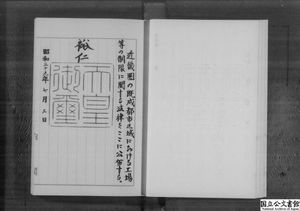 近畿圏の既成都市区域における工場
等の制限に関する法律をここに公布する。
裕仁
天皇
御璽
昭和三十九年七月三日
国立公文書館
National Archives of Japan